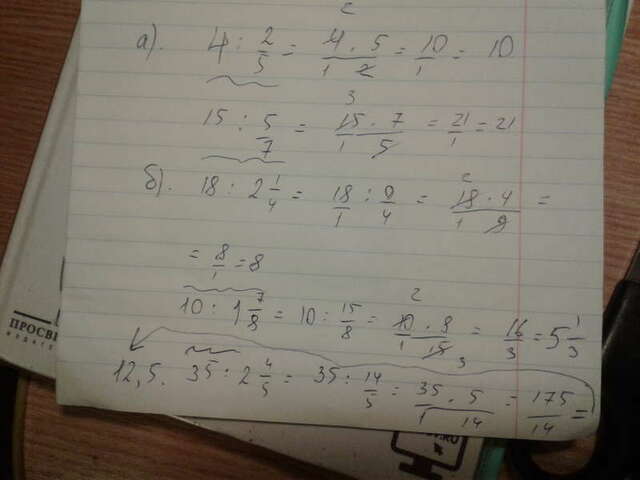 2
а). 4 : 2/5 = 4 · 5 / 1 · 2 = 10/1 = 10
3
15 : 5/7 = 15 · 7 / 1 · 5 = 21/1 = 21
2
б). 18 : 2 1/4 = 18/1 : 9/4 = 18 · 4 / 1 · 9 =
= 8/1 = 8
2
10 : 1 7/8 = 10 : 15/8 = 10 · 8 / 1 · 15 3 = 16/3 = 5 1/3
12,5. 35 : 2 4/5 = 35 : 14/5 = 35 · 5 / 1 · 14 = 175/14 =
ПРОСВЕ
.RU